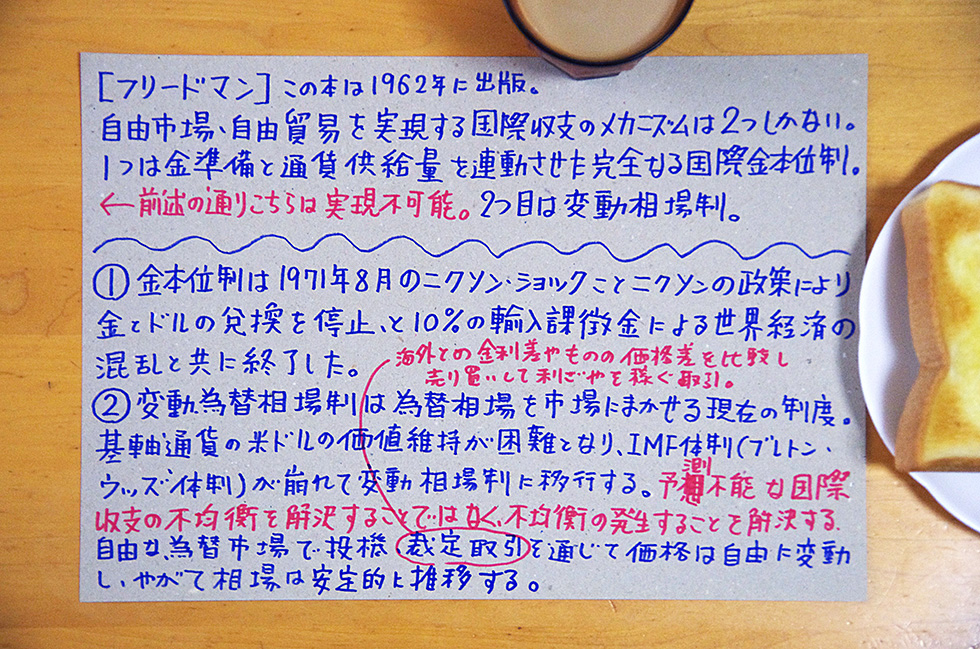 [フリードマン]この本は1962年に出版。
自由市場、自由貿易を実現する国際収支のメカニズムは2つしかない。
1つは金準備と通貨供給量を連動させた完全なる国際金本位制。
←前述の通りこちらは実現不可能。2つ目は変動相場制。
①金本位制は1971年8月のニクソン・ショックことニクソンの政策により
金とドルの兌換を停止、と10%の輸入課徴金による世界経済の
混乱と共に終了した。
海外との金利差やものの価格差を比較し
売り買いして利ざやを稼ぐ取引。
②変動為替相場制は為替相場を市場にまかせる現在の制度。
基軸通貨の米ドルの価値維持が困難となり、IMF体制(ブレトン・
ウッズ体制)が崩れて変動相場制に移行する。予測不能な国際
収支の不均衡を解決することではなく、不均衡の発生することを解決する。
自由な為替市場で投機、裁定取引を通じて価格は自由に変動
し、やがて相場は安定的に推移する。